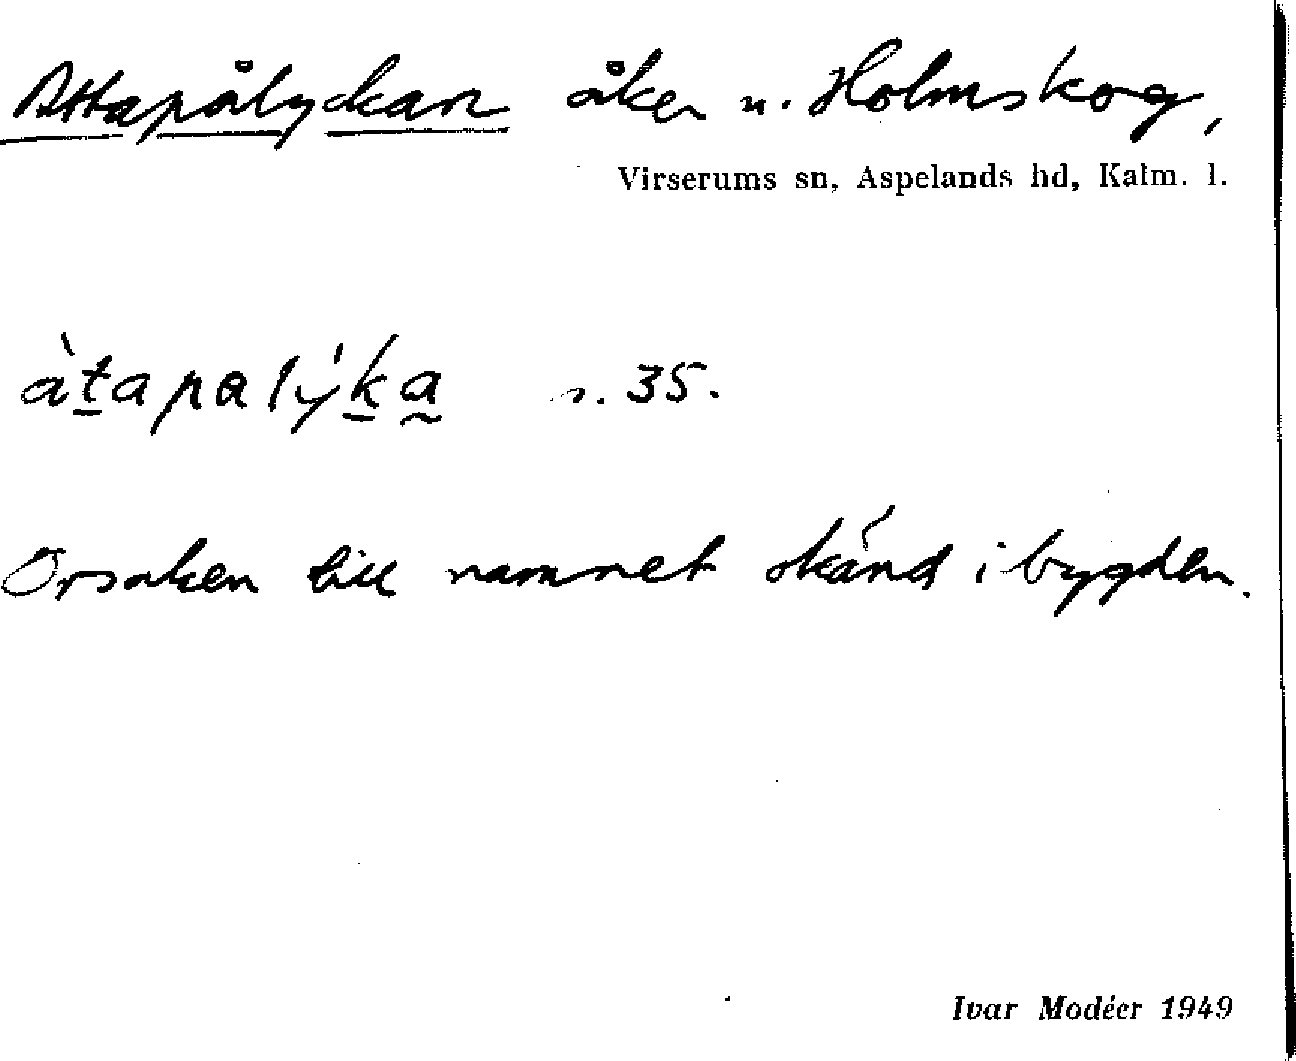 Attapålyckan åker u. Holmskog,
Virserums sn, Aspelands hd, Kalm. l.
àtapalýka s. 35.
Orsaken till namnet okänd i bygden.
Ivar Modéer 1949